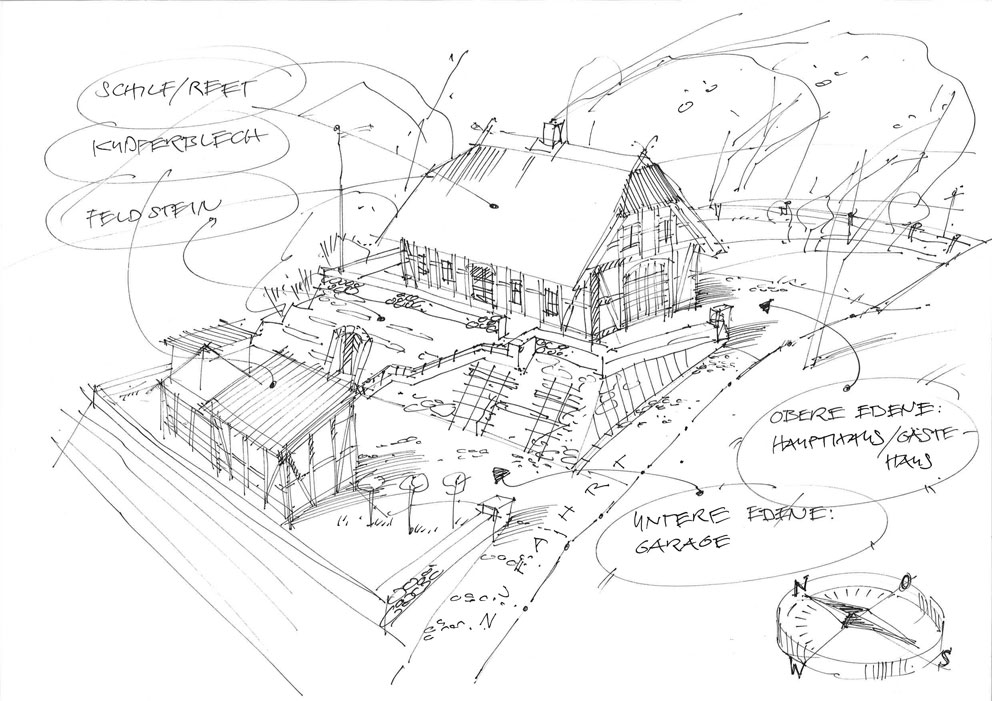 SCHILF/REET
KUPFERBLECH
FELDSTEIN
OBERE EBENE:
HAUPTHAUS/GÄSTE-
HAUS
UNTERE EBENE:
GARAGE
ZUFAHRT
N
O
W
S